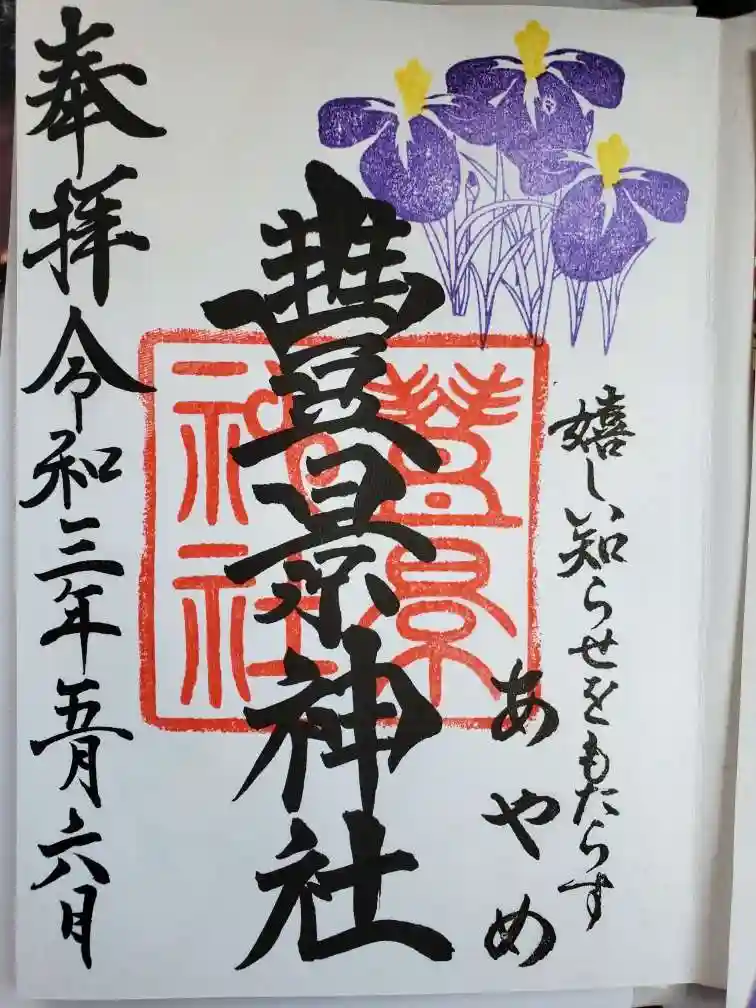 嬉しい知らせをもたらす
あやめ
豊景神社
豊景神社
奉拝 令和三年五月六日